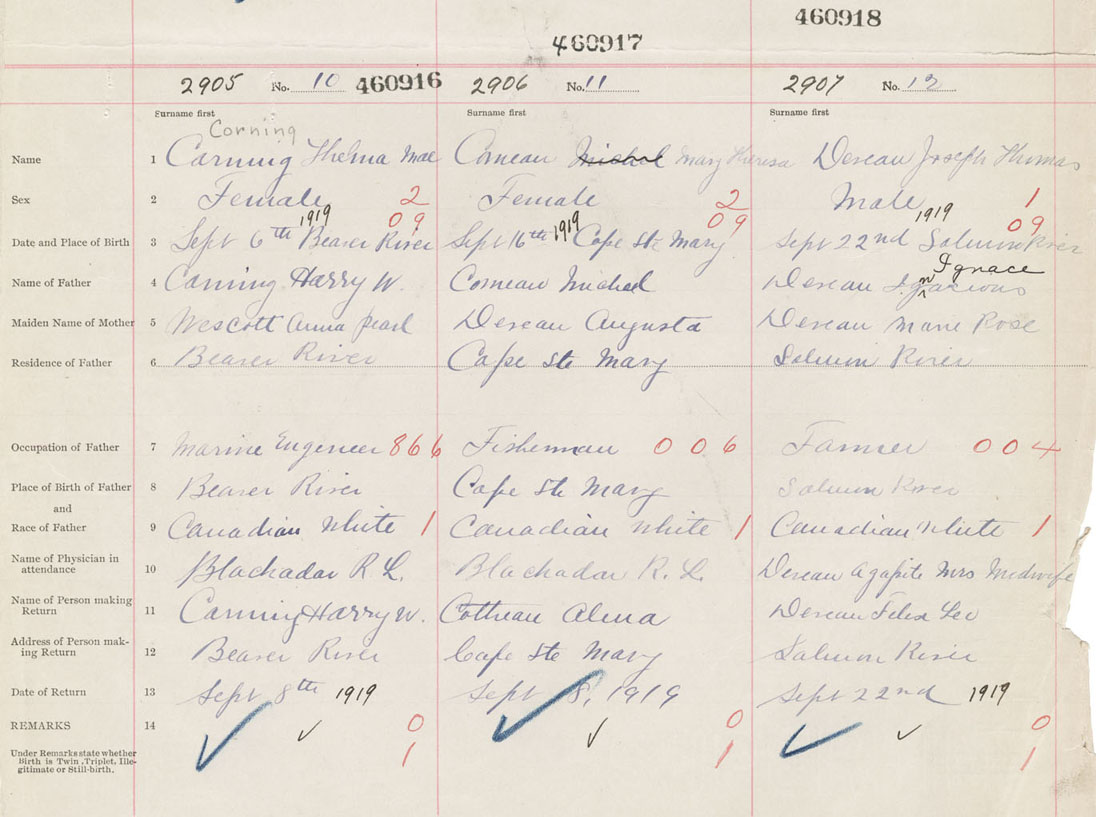 460918
460917
2905 No. 10 460916 2906 No. 11 2907 No. 12
Surname first Surname first Surname first
Corning
Name 1 Corning Thelma Mae Comeau Michel Mary Theresa Deveau Joseph Thomas
Sex 2 Female 2 Female 2 Male 1
1919 09 1919 09 1919 09
Date and Place of Birth 3 Sept 6th Beaver River Sept 16th Cape Ste Mary Sept 22nd Salmon River
Ignace
Name of Father 4 Corning Harry W. Comeau Michael Deveau
Maiden Name of Mother 5 Wescott Anna Pearl Deveau Augusta Deveau Marie Rose
Residence of Father 6 Beaver River Cape Ste Mary Salmon River
Occupation of Father 7 Marine Engeneer 866 Fisherman 006 Farmer 004
Place of Birth of Father 8 Beaver River Cape Ste Mary Salmon River
and
Race of Father 9 Canadian White 1 Canadian White 1 Canadian White 1
Name of Physician in
attendance 10 Blackadar R. L. Blackadar R. L. Deveau Agapite Mrs Midwife
Name of Person making
Return 11 Corning Harry W. Cottreau Alma Deveau Felix Leo
Address of Person mak-
ing Return 12 Beaver River Cape Ste Mary Salmon River
Date of Return 13 Sept 8th 1919 Sept 8, 1919 Sept 22nd 1919
REMARKS 14 0 0 0
Under Remarks state whether 1 1 1
Birth is Twin, Triplet, Ille-
gitimate or Still-birth.